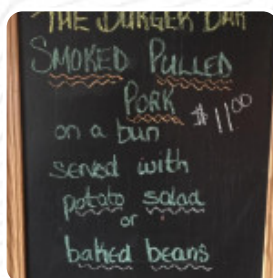 THE BURGER BAR
SMOKED PULLED
PORK $11.00
on a bun
served with
potato salad
or
baked beans